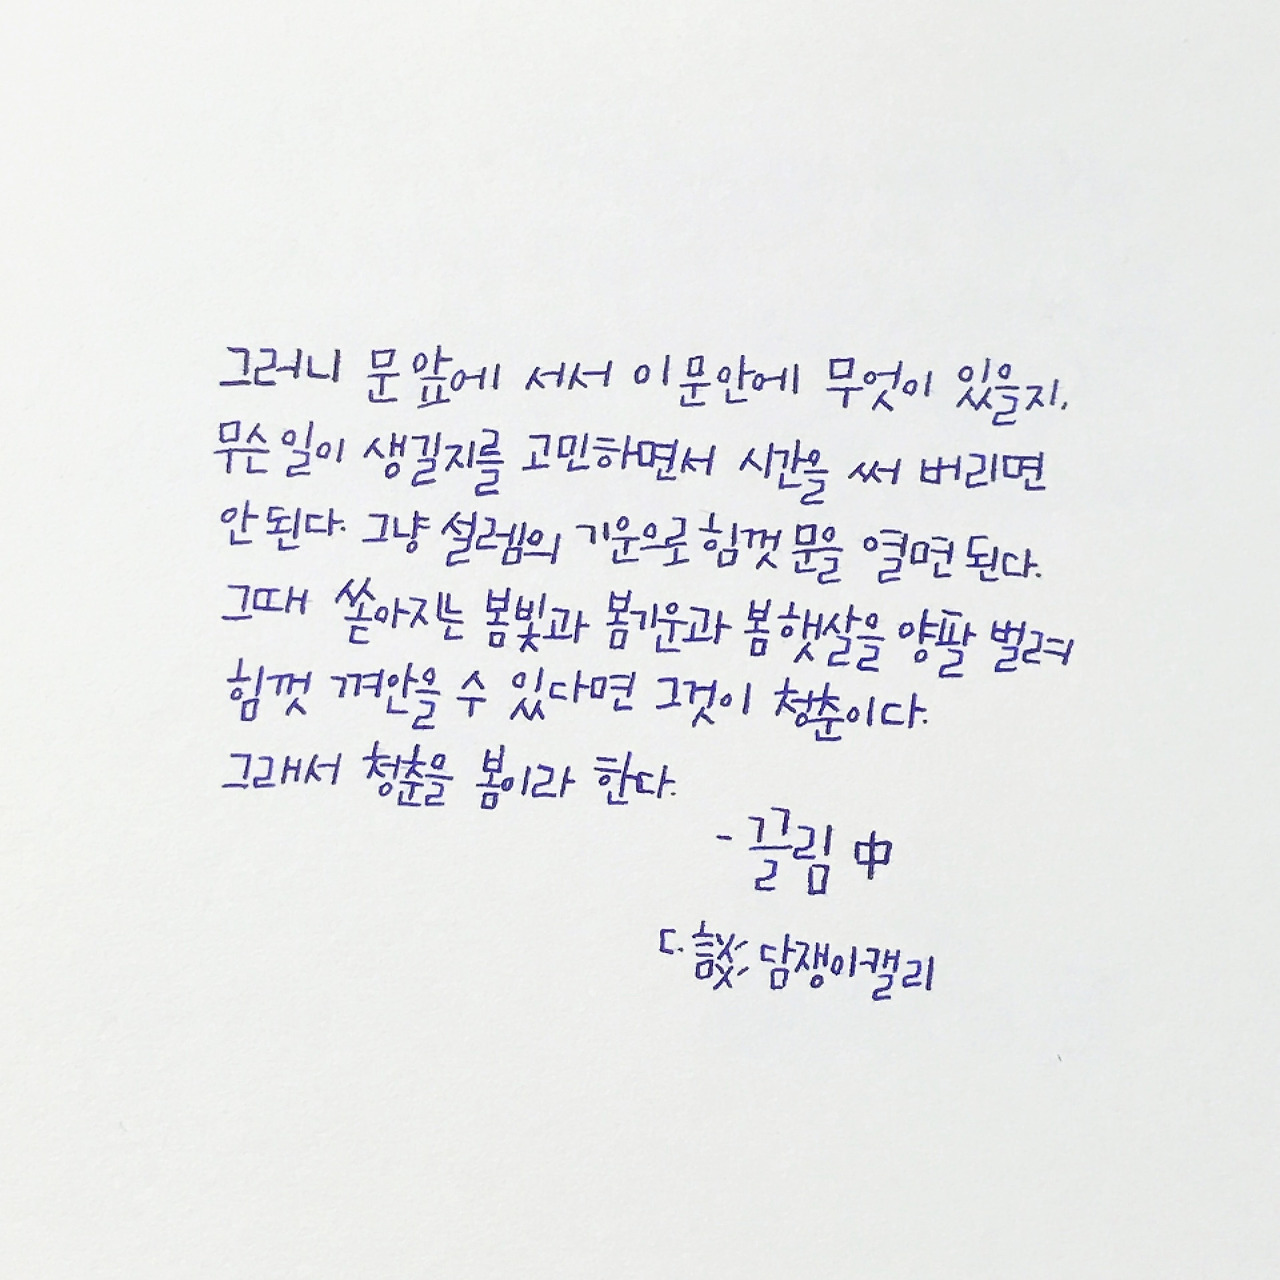 그러니 문 앞에 서서 이 문안에 무엇이 있을지,
무슨 일이 생길지를 고민하면서 시간을 써 버리면
안 된다. 그냥 설렘의 기운으로 힘껏 문을 열면 된다.
그때 쏟아지는 봄빛과 봄기운과 봄햇살을 양팔 벌려
힘껏 껴안을 수 있다면 그것이 청춘이다.
그래서 청춘을 봄이라 한다.
- 끌림 中
담쟁이캘리